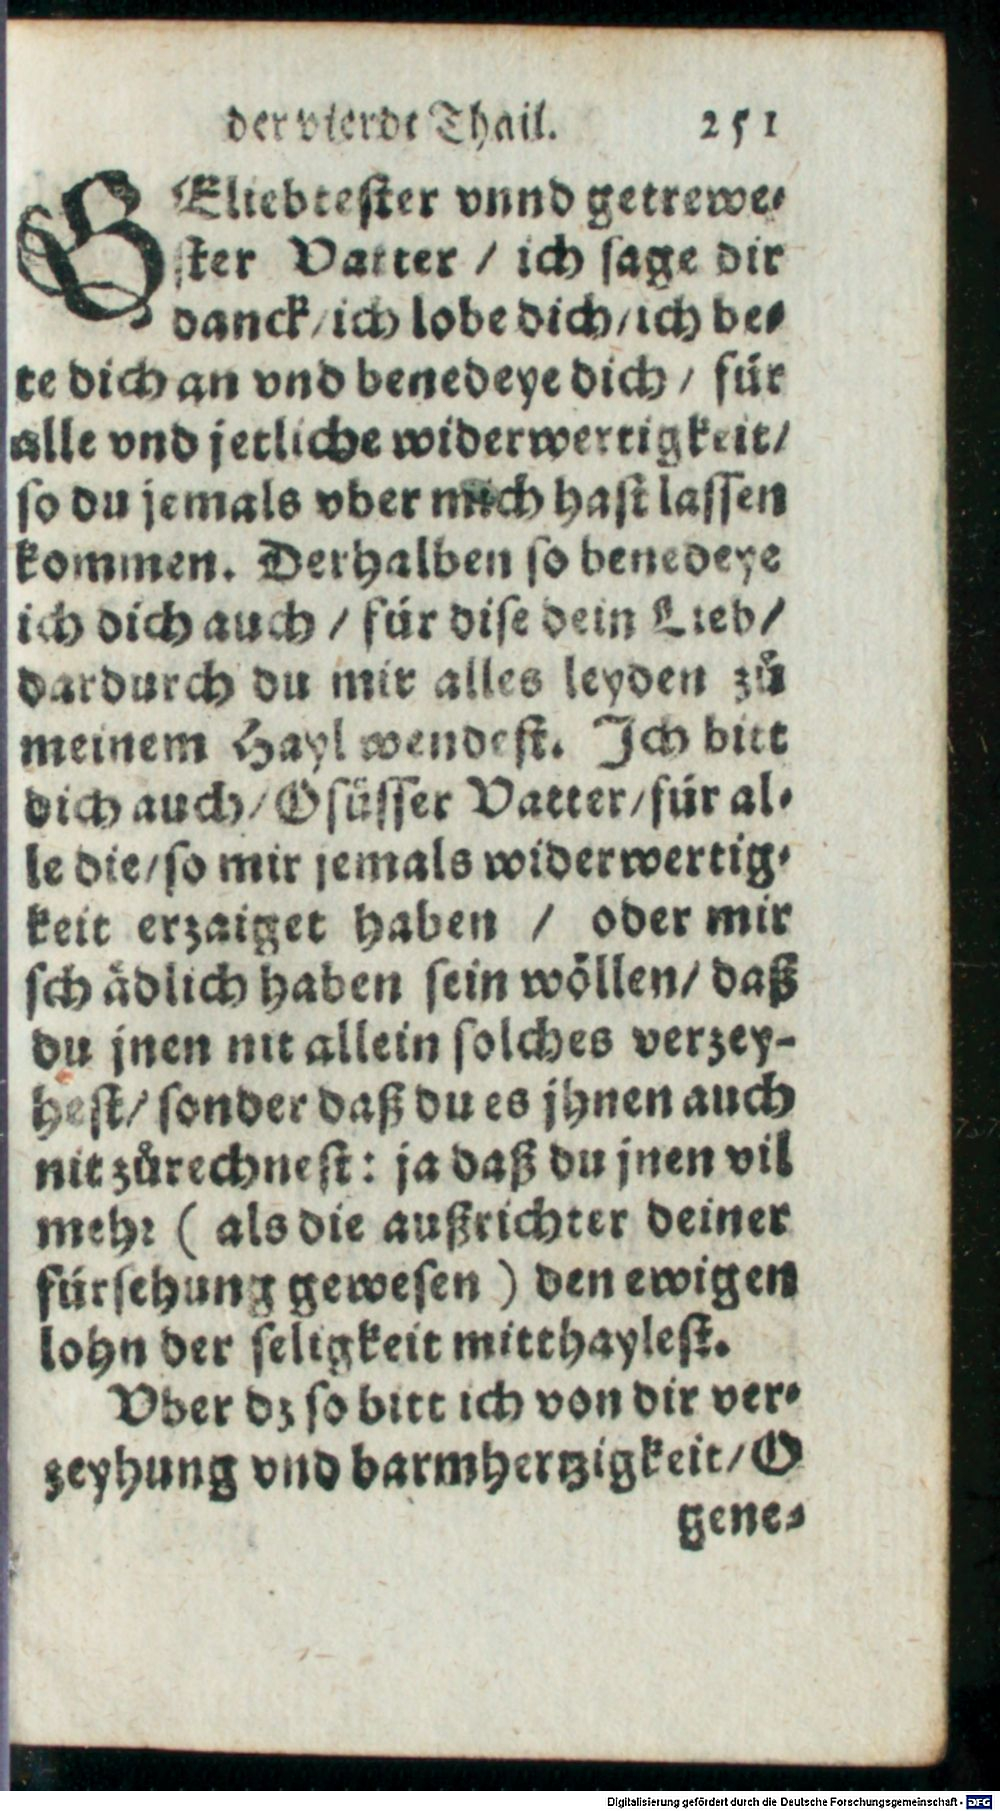 der vierdt Thail. 251
GEliebtester vnnd getrewe-
ster Vatter / ich sage dir
danck/ich lobe dich/ich be-
te dich an vnd benedeye dich / für
alle vnd jetliche widerwertigkeit/
so du jemals vber mich hast lassen
kommen. Derhalben so benedeye
ich dich auch / für dise dein Lieb/
dardurch du mir alles leyden zů
meinem Hayl wendest. Ich bitt
dich auch/O süsser Vatter/für al-
le die/so mir jemals widerwertig-
keit erzaiget haben / oder mir
schädlich haben sein wöllen/ daß
du jnen nit allein solches verzey-
hest/ sonder daß du es jhnen auch
nit zůrechnest: ja daß du jnen vil
mehr ( als die außrichter deiner
fürsehung gewesen ) den ewigen
lohn der seligkeit mitthaylest.
Vber dz so bitt ich von dir ver-
zeyhung vnd barmhertzigkeit/ O
gene-
Digitalisierung gefördert durch die Deutsche Forschungsgemeinschaft - DFG